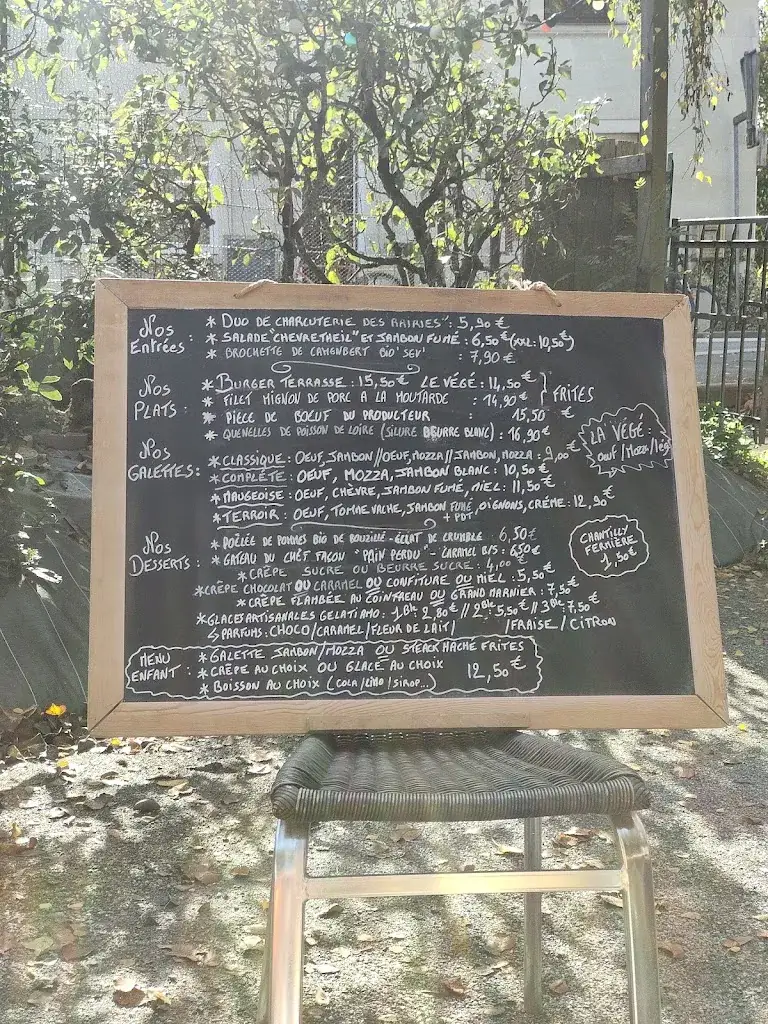 Nos Entrées :
* DUO DE CHARCUTERIE DES RAIRIES : 5,90 €
* SALADE "CHEVRETHEIL" ET JAMBON FUMÉ : 6,50€ (XXL: 10,50€)
* BROCHETTE DE CAMEMBERT BIO : 7,90 €
Nos PLATS :
* BURGER TERRASSE : 15,50€ LE VÉGÉ : 14,50€
* FILET MIGNON DE PORC A LA MOUTARDE : 14,90€
FRITES
* PIÈCE DE BOEUF DU PRODUCTEUR : 15,50 €
* QUENELLES DE POISSON DE LOIRE (SILURE BEURRE BLANC) : 16,90€
LA VÉGÉ :
OEUF/MOZZA/
Nos GALETTES :
* CLASSIQUE : OEUF, JAMBON // OEUF, MOZZA // JAMBON, MOZZA : 9,00€
* COMPLÈTE : OEUF, MOZZA, JAMBON BLANC : 10,50€
* MAUGEOISE : OEUF, CHÈVRE, JAMBON FUMÉ, MIEL : 11,50€
* TERROIR : OEUF, TOMME VACHE, JAMBON FUMÉ, OIGNONS, CRÈME : 12,90€
+ PDT
Nos DESSERTS :
* POÊLÉE DE POMMES BIO DE BOUZILLÉ - ÉCLAT DE CRUMBLE : 6,50€
* GATEAU DU CHEF FAÇON "PAIN PERDU" - CARAMEL B/S : 6,50€
* CRÊPE SUCRE OU BEURRE SUCRE : 4,00 €
* CRÊPE CHOCOLAT OU CARAMEL OU CONFITURE OU MIEL : 5,50€
* CRÊPE FLAMBÉE AU COINTREAU OU GRAND MARNIER : 7,50€
* GLACES ARTISANALES GELATIAMO : 1 Ble 2,80€ // 2 Ble 5,50€ // 3 Ble 7,50€
↳ PARFUMS : CHOCO/CARAMEL/FLEUR DE LAIT/ /FRAISE/CITRON
CHANTILLY
FERMIÈRE
1,50€
MENU ENFANT :
* GALETTE JAMBON/MOZZA OU STEACK HACHÉ FRITES
* CRÊPE AU CHOIX OU GLACE AU CHOIX
12,50€
* BOISSON AU CHOIX (COLA/LIMO/SIROP...)